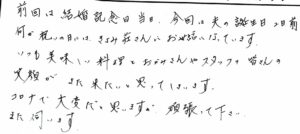 前回は結婚記念日当日、今回は夫の誕生日2日前
何か祝いの日には、きよみ荘さんにお世話になっています。
いつも美味しい料理とおかみさんやスタッフの皆さんの
笑顔がまた来たいと思ってしまいます。
コロナで大変だと思いますが頑張って下さい
また伺います。